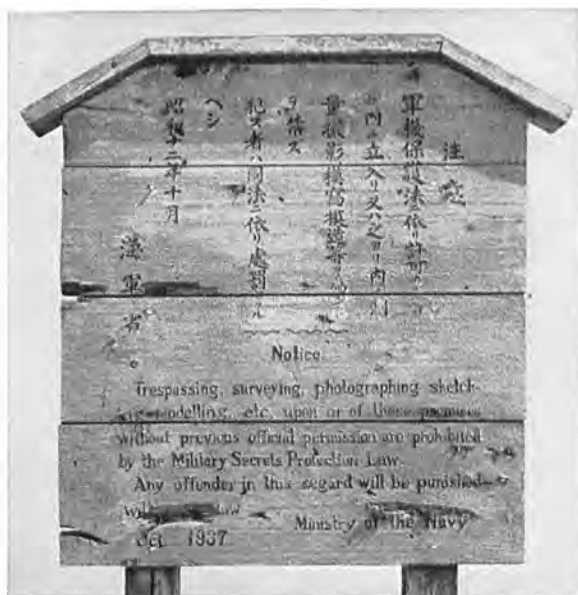 注意
軍機保護法ニ依リ許可
門ニ立入リ又ハ之ヨリ内 測
量撮影模寫模造等
ヲ禁ス
犯ス者ハ同法ニ依リ處罰 ル
ヘシ
昭和十二年十月
海軍省。
Notice
Trespassing, surveying, photographing sketch-
ing modelling, etc, upon or of these premises
without previous official permission are prohibited
by the Military Secrets Protection Law.
Any offender in this regard will be punished
law
Ministry of the Navy
Oct. 1937